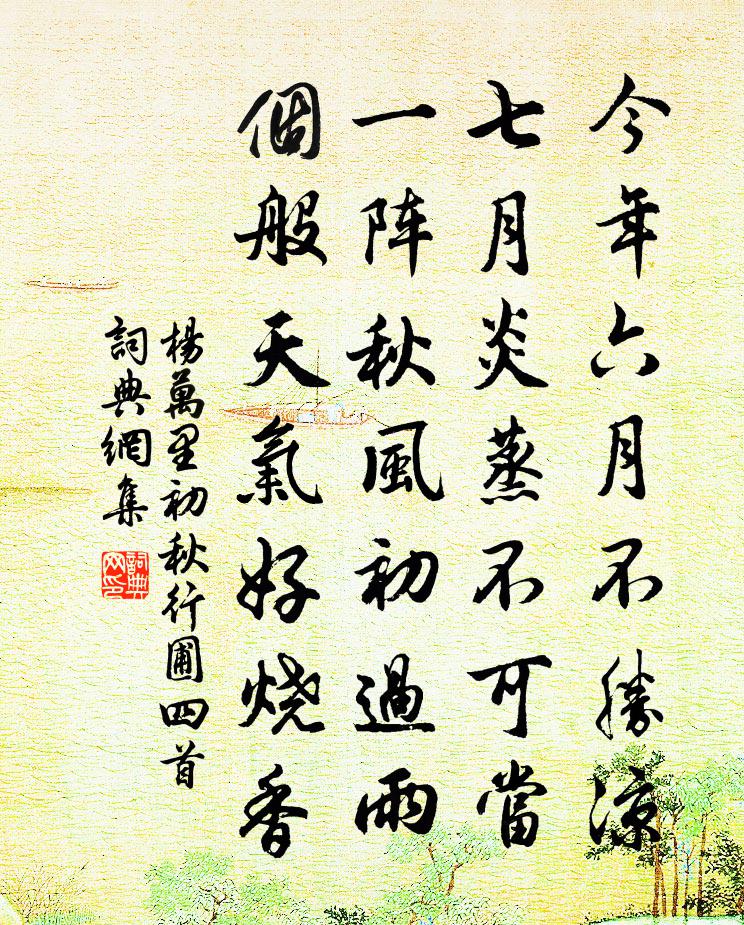 今年六月不勝涼
七月炎蒸不可當
一阵秋風初過雨
個般天氣好烧香
楊萬里初秋行圃四首
詞典網集
詞典网印